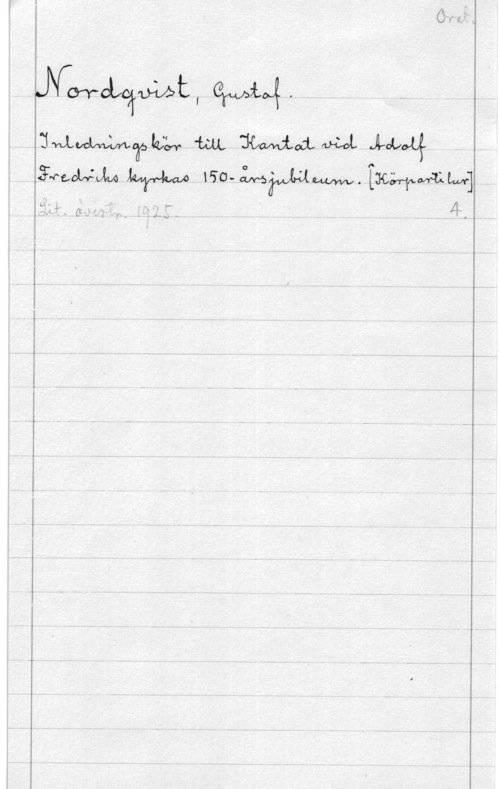 Orat.
Nordqvist, Gustaf.
Inledningskör till Kantat vid Adolf
Fredriks kyrkas 150-årsjubileum. [Körpartitur]
Lit. övertr. 1925. 4.